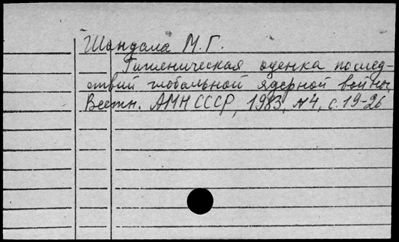 Шандала М.Г.
Гигиеническая оценка послед-
ствий глобальной ядерной войны,
Вестн. АМН СССР, 1983, №4, с.19-26